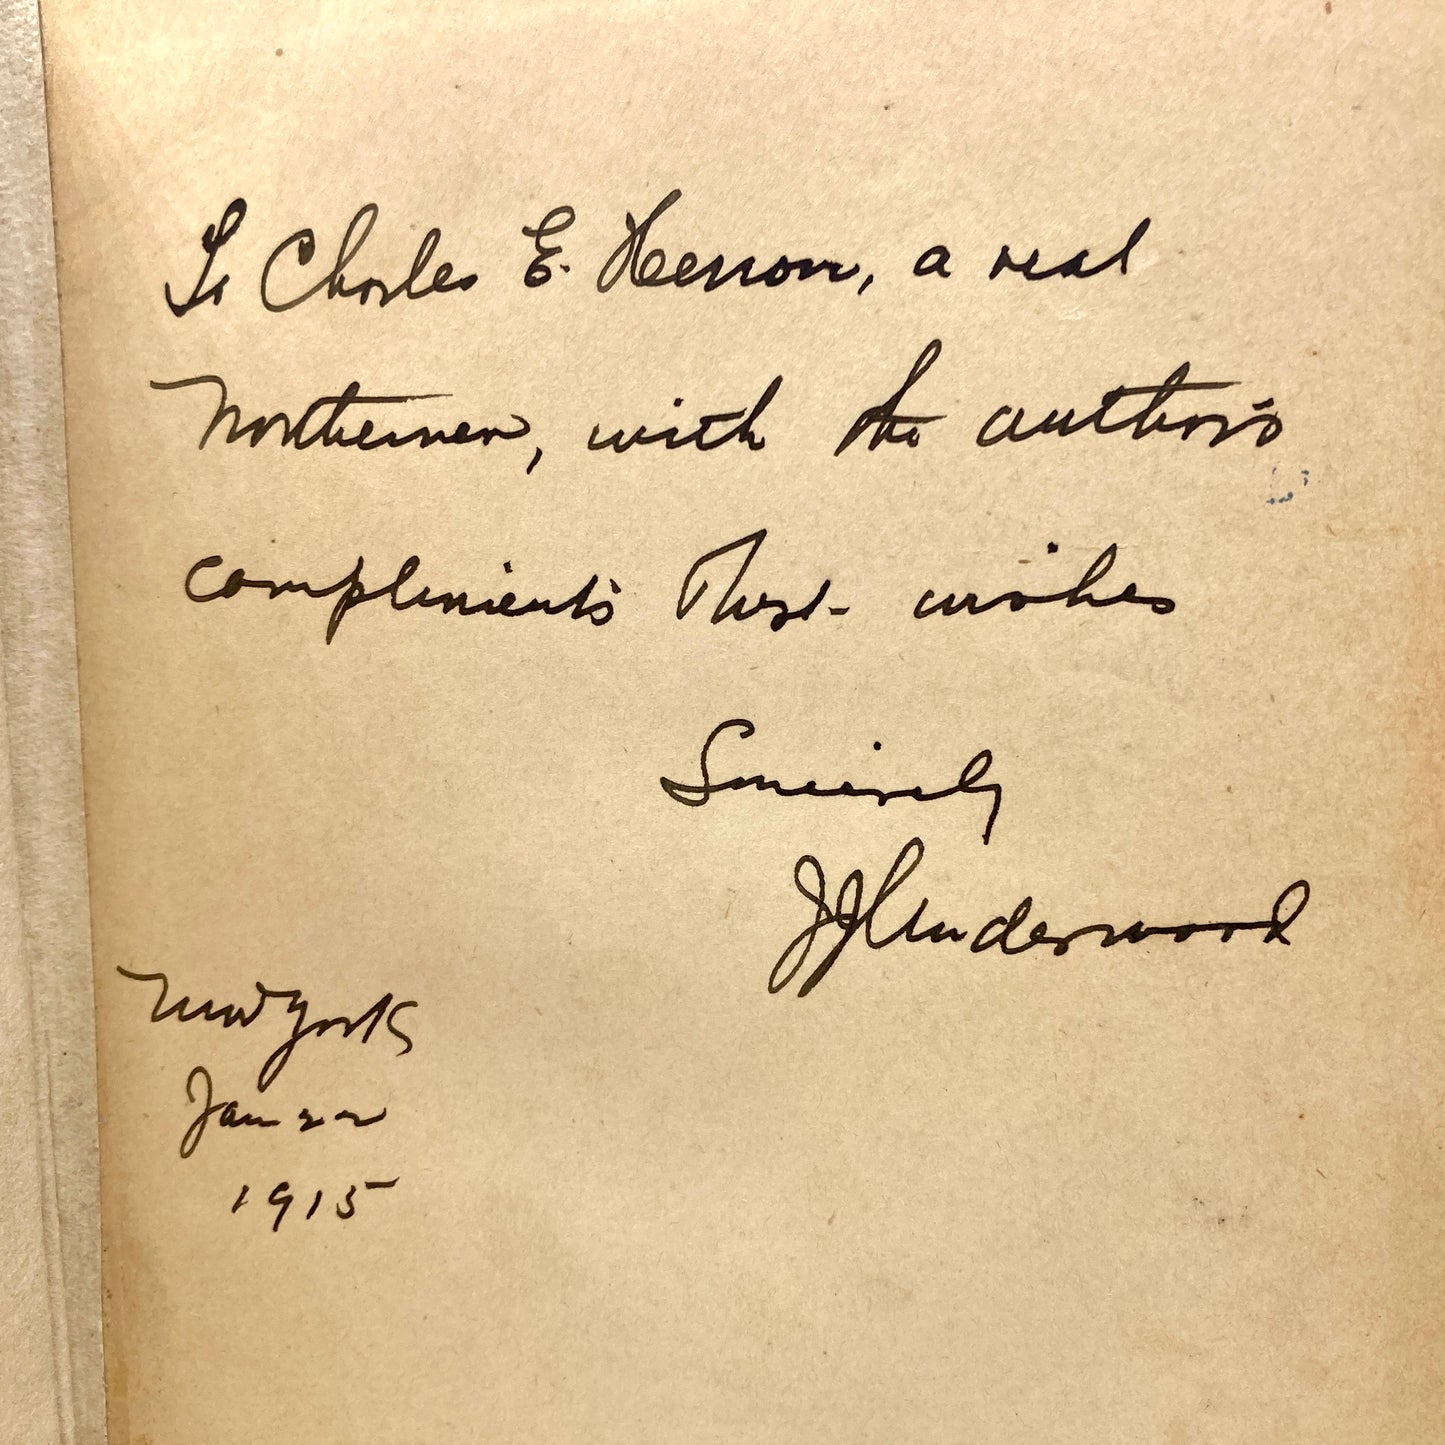 To Charles E. Herron, a real
Northerner, with the author's
compliments & best wishes
Sincerely
JJ Underwood
New York
Jan 22
1915